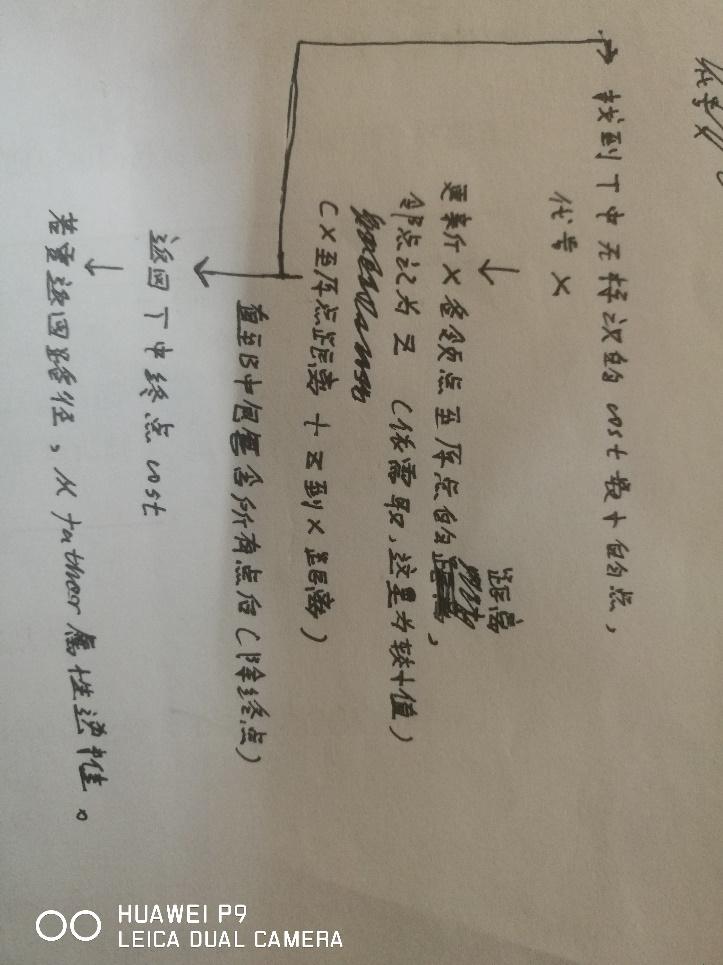 代号
找到T中 cost最小的点,
代号X
更新 X各邻点至原点的距离,
邻点记为Z (依需取,这里为较小值)
(X至原点距离 + Z到X距离)
直至B中包含所有点后(除终点)
返回T中终点cost
若要返回路径,从father属性逆推。
HUAWEI P9
LEICA DUAL CAMERA